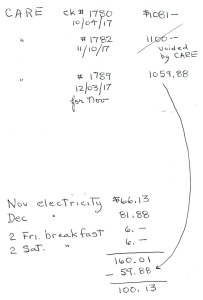 CARE ck # 1780 $1081 —
10/04/17
" # 1782 1100 —
11/10/17 voided
by CARE
" # 1789 1059.88
12/03/17
for Nov
Nov electricity $66.13
Dec " 81.88
2 Fri. breakfast 6. —
2 Sat. " 6. —
160.01
- 59.88
100.13